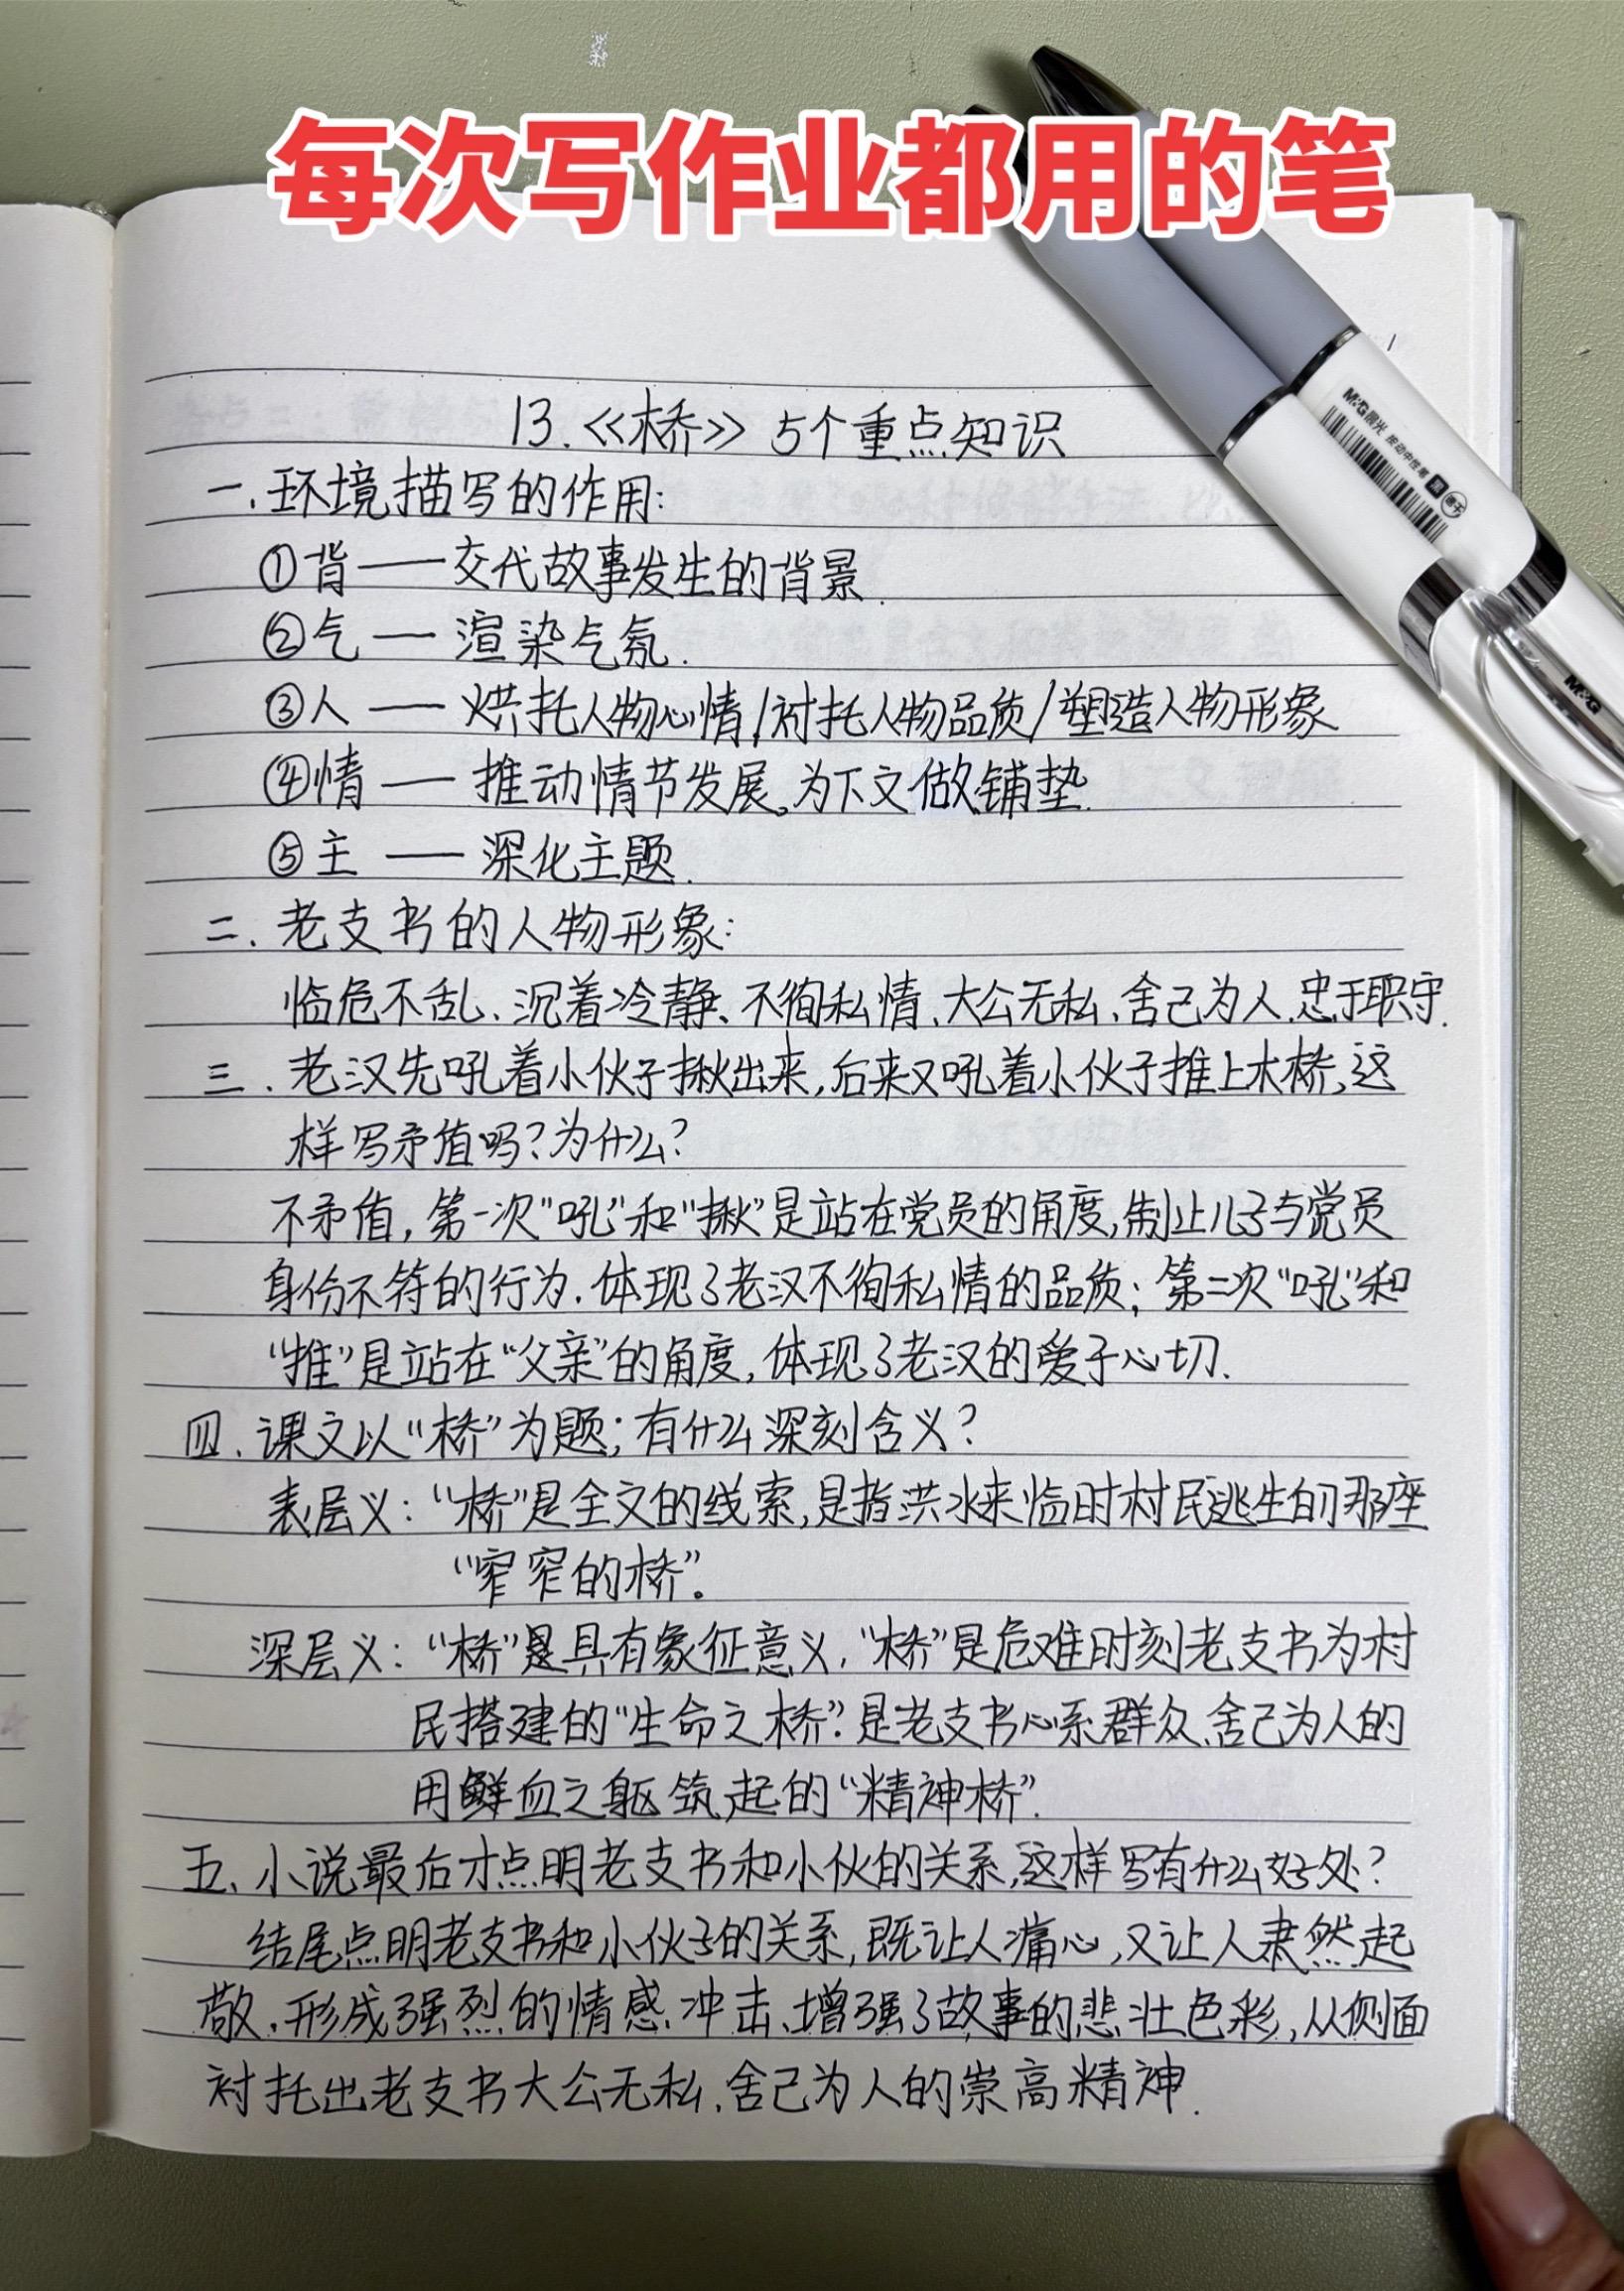 每次写作业都用的笔
M&G晨光 按动中性笔
M&G
13.《桥》5个重点知识
一.环境描写的作用:
①背——交代故事发生的背景.
②气——渲染气氛.
③人——烘托人物心情/衬托人物品质/塑造人物形象
④情——推动情节发展。为下文做铺垫.
⑤主——深化主题.
二.老支书的人物形象:
临危不乱、沉着冷静、不徇私情、大公无私、舍己为人.忠于职守.
三.老汉先吼着小伙子揪出来,后来又吼着小伙子推上木桥,这
样写矛值吗?为什么?
不矛值,第一次“吼”和“揪”是站在党员的角度,制止儿子与党员
身份不符的行为.体现了老汉不徇私情的品质;第二次“吼”和
“推”是站在“父亲”的角度,体现了老汉的爱子心切.
四.课文以“桥”为题;有什么深刻含义?
表层义:“桥”是全文的线索,是指洪水来临时村民逃生的那座
“窄窄的桥”。
深层义:“桥”是具有象征意义,“桥”是危难时刻老支书为村
民搭建的“生命之桥”?是老支书心系群众、舍己为人的
用鲜血之躯筑起的“精神桥”.
五、小说最后才点明老支书和小伙的关系,这样写有什么好处?
结尾点明老支书和小伙子的关系,既让人痛心,又让人肃然起
敬.形成强烈的情感冲击、增强了故事的悲壮色彩,从侧面
衬托出老支书大公无私、舍己为人的崇高精神.